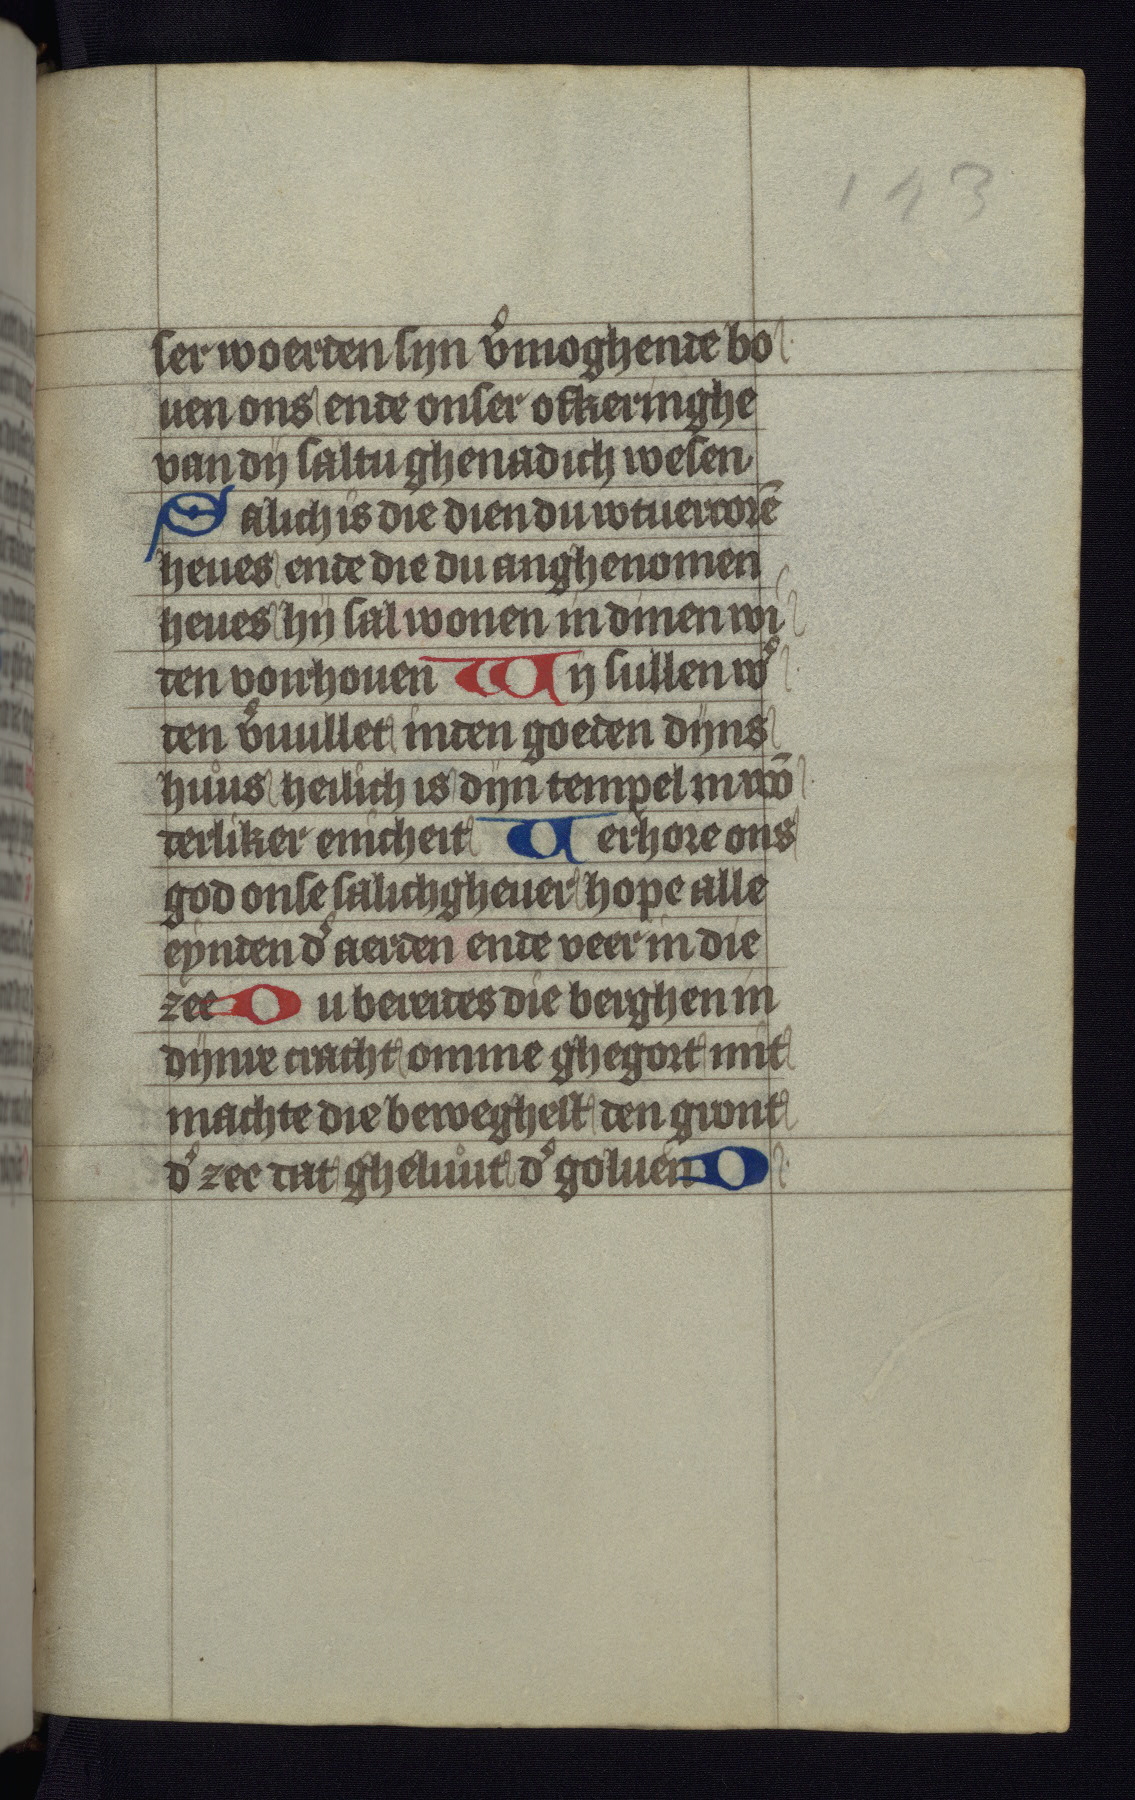 143
ser woerden sijn v̊moghende bo
uen ons ende onser ofkeringhe
van dij saltu ghenadich wesen
Salich is die dien du wtuercorē
heues ende die du anghenomen
heues hij sal wonen in dinen wi
den voirhouen Wij sullen w̉
den v̊uullet inden goeden dijns
huůs heilich is dijn tempel in wō
derliker enicheit Uerhore ons
god onse salichgheuer hope alle
eynden d̉ aerden ende veer in die
zee Du bereites die berghen in
dijnre cracht omme ghegort mit
machte die beweghest den gront
d̉ zee dat gheluůt d̉ goluen D